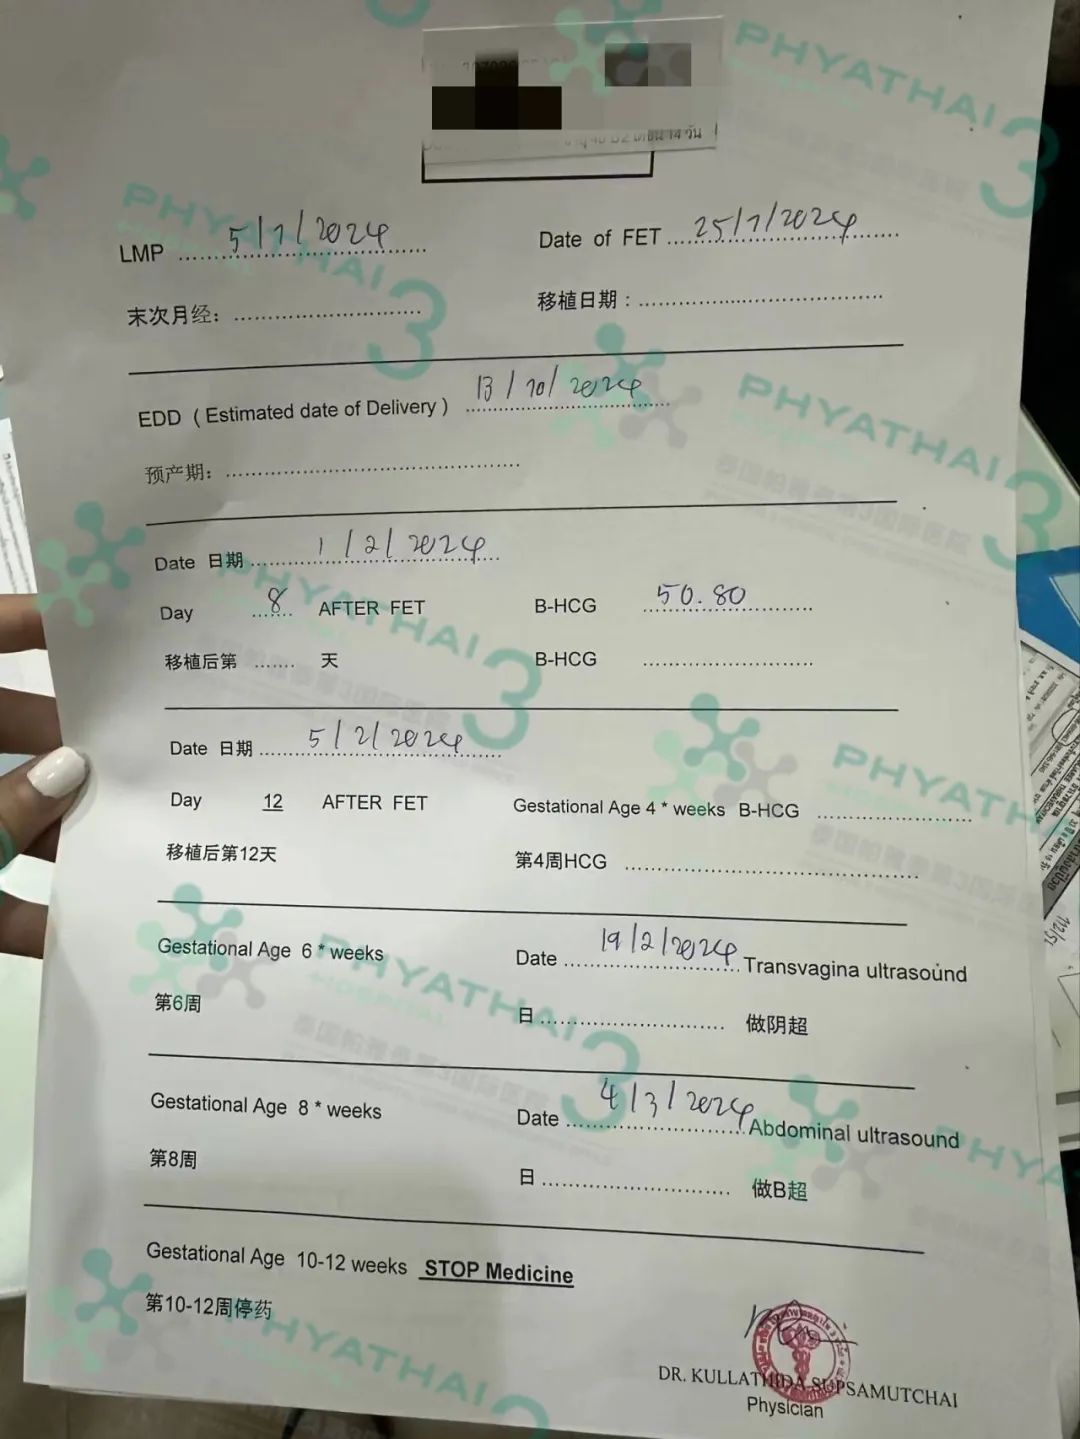 PHYATHAI 3
LMP 5/1/2024 Date of FET 25/1/2024
末次月经: 移植日期:
EDD (Estimated date of Delivery) 13/10/2024
预产期:
Date 日期 1/2/2024
Day 8 AFTER FET B-HCG 50.80
移植后第 天 B-HCG
Date 日期 5/2/2024
Day 12 AFTER FET Gestational Age 4 * weeks B-HCG
移植后第12天 第4周HCG
Gestational Age 6 * weeks Date 19/2/2024 Transvagina ultrasound
第6周 日 做阴超
Gestational Age 8 * weeks Date 4/3/2024 Abdominal ultrasound
第8周 日 做B超
Gestational Age 10-12 weeks STOP Medicine
第10-12周停药
DR. KULLATHIDA SUPSAMUTCHAI
Physician